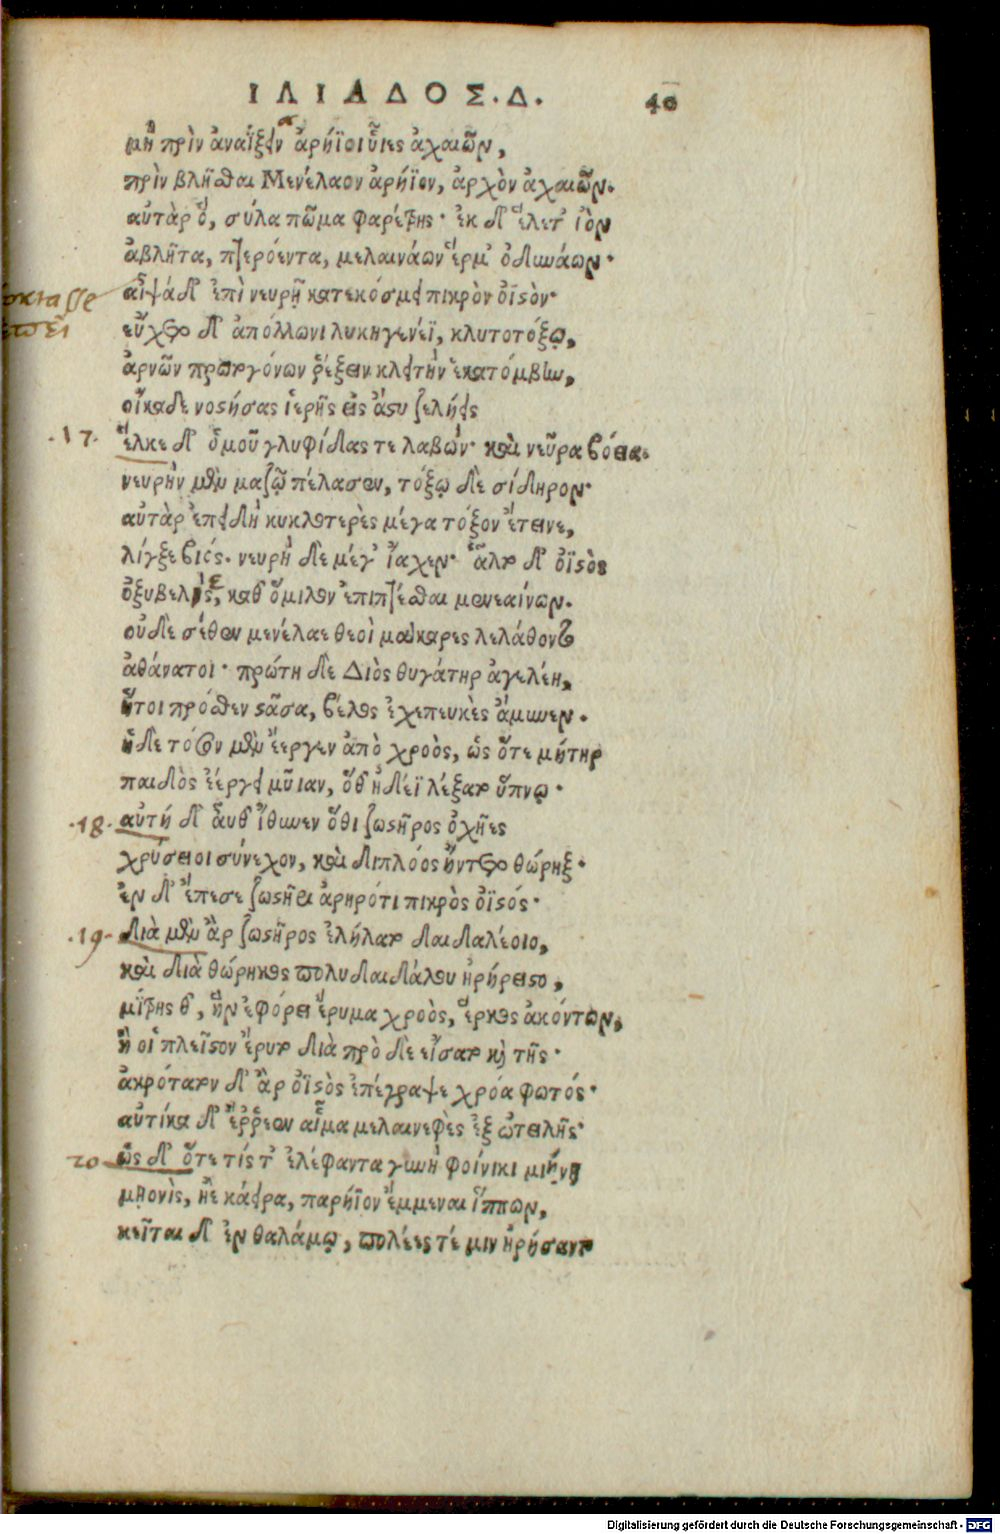 ΙΛΙΑΔΟΣ. Δ. 40
μὴ πρὶν ἀναΐξειαν ἀρήϊοι ὗιες ἀχαιῶν,
πρὶν βλῆσθαι Μενέλαον ἀρήϊον, ἀρχὸν ἀχαιῶν.
αὐτὰρ ὅ, σύλα πῶμα φαρέτρης· ἐκ δ' ἕλετ' ἰὸν
ἀβλῆτα, πτερόεντα, μελαινάων ἕρμ' ὀδυνάων·
αἶψά δ' ἐπὶ νευρῇ κατεκόσμει πικρὸν ὀϊστὸν·
εὔχετο δ' ἀπόλλωνι λυκηγενέϊ, κλυτοτόξῳ,
ἀρνῶν πρωτογόνων ῥέξειν κλειτὴν ἑκατόμβην,
οἴκαδε νοστήσας ἱερῆς εἰς ἄστυ ζελείης
.17. ἕλκε δ' ὁμοῦ γλυφίδας τε λαβών· καὶ νεῦρα βόεια.
νευρὴν μὲν μαζῷ πέλασεν, τόξῳ δὲ σίδηρον·
αὐτὰρ ἐπειδὴ κυκλοτερὲς μέγα τόξον ἔτεινε,
λίγξε βιός. νευρὴ δὲ μέγ' ἴαχεν· ἄλτο δ' ὀϊστὸς
ὀξυβελὴς, καθ' ὅμιλον ἐπιπτέσθαι μενεαίνων.
οὐδὲ σέθεν μενέλαε θεοὶ μάκαρες λελάθοντο
ἀθάνατοι· πρώτη δὲ Διὸς θυγάτηρ ἀγελέιη,
ἥτοι πρόσθεν στᾶσα, βέλος ἐχεπευκὲς ἄμυνεν.
ἡ δὲ τόσον μὲν ἔεργεν ἀπὸ χροὸς, ὡς ὅτε μήτηρ
παιδὸς ἐέργει μῦιαν, ὅθ' ἡδέϊ λέξατο ὕπνῳ·
.18. αὐτή δ' αὖθ' ἴθυνεν ὅθι ζωστῆρος ὀχῆες
χρύσειοι σύνεχον, καὶ διπλόος ἤντετο θώρηξ·
ἐν δ' ἔπεσε ζωστῆρι ἀρηρότι πικρὸς ὀϊστός·
.19. διὰ μὲν ἂρ ζωστῆρος ἐλήλατο δαιδαλέοιο,
καὶ διὰ θώρηκος πολυδαιδάλου ἠρήρειστο,
μίτρης θ', ἣν ἐφόρει ἔρυμα χροὸς, ἕρκος ἀκόντων,
ἥ οἱ πλεῖστον ἔρυτο διὰ πρὸ δὲ εἴσατο καὶ τῆς·
ἀκρότατον δ' ἂρ ὀϊστὸς ἐπέγραψε χρόα φωτός·
αὐτίκα δ' ἔρρεεν αἷμα μελαινεφὲς ἐξ ὠτειλῆς·
20 ὡς δ' ὅτε τίς τ' ἐλέφαντα γυνὴ φοίνικι μιήνῃ
μῃονὶς, ἠὲ κάειρα, παρήϊον ἔμμεναι ἵππων,
κεῖται δ' ἐν θαλάμῳ, πολέες τέ μιν ἠρήσαντο
Digitalisierung gefördert durch die Deutsche Forschungsgemeinschaft - DFG